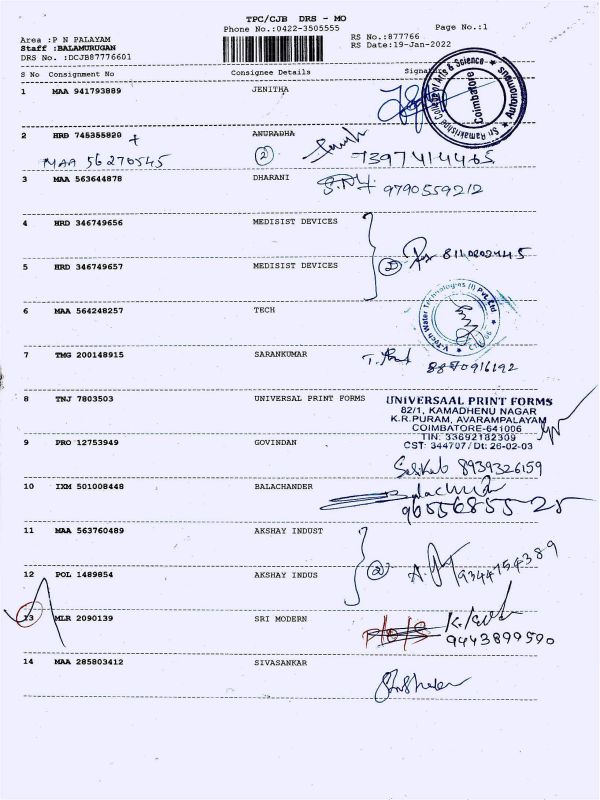 TPC/CJB DRS - MO
Phone No.:0422-3505555
Page No.:1
Area :P N PALAYAM
Staff :BALAMURUGAN
DRS No. :DCJB87776601
RS No.:877766
RS Date:19-Jan-2022
S No Consignment No Consignee Details Signat
1 MAA 941793889 JENITHA
Sri Ramakrishna College of Arts & Science
Coimbatore
Autonomous
2 HRD 745355820 + ANURADHA
MAA 56270545 (2) 7397414465
3 MAA 563644878 DHARANI
9790559212
4 HRD 346749656 MEDISIST DEVICES
(2)
5 HRD 346749657 MEDISIST DEVICES
6 MAA 564248257 TECH
V-Tech Water Technologies (I) Pvt. Ltd
7 TMG 200148915 SARANKUMAR
8870916192
8 TNJ 7803503 UNIVERSAL PRINT FORMS
UNIVERSAAL PRINT FORMS
82/1, KAMADHENU NAGAR
K.R.PURAM, AVARAMPALAYAM
COIMBATORE-641006
TIN: 33692182309
CST: 344707/Dt: 26-02-03
9 PRO 12753949 GOVINDAN
8939326159
10 IXM 501008448 BALACHANDER
11 MAA 563760489 AKSHAY INDUST
(2) 9344754389
12 POL 1489854 AKSHAY INDUS
13 MLR 2090139 SRI MODERN
9443899590
14 MAA 285803412 SIVASANKAR